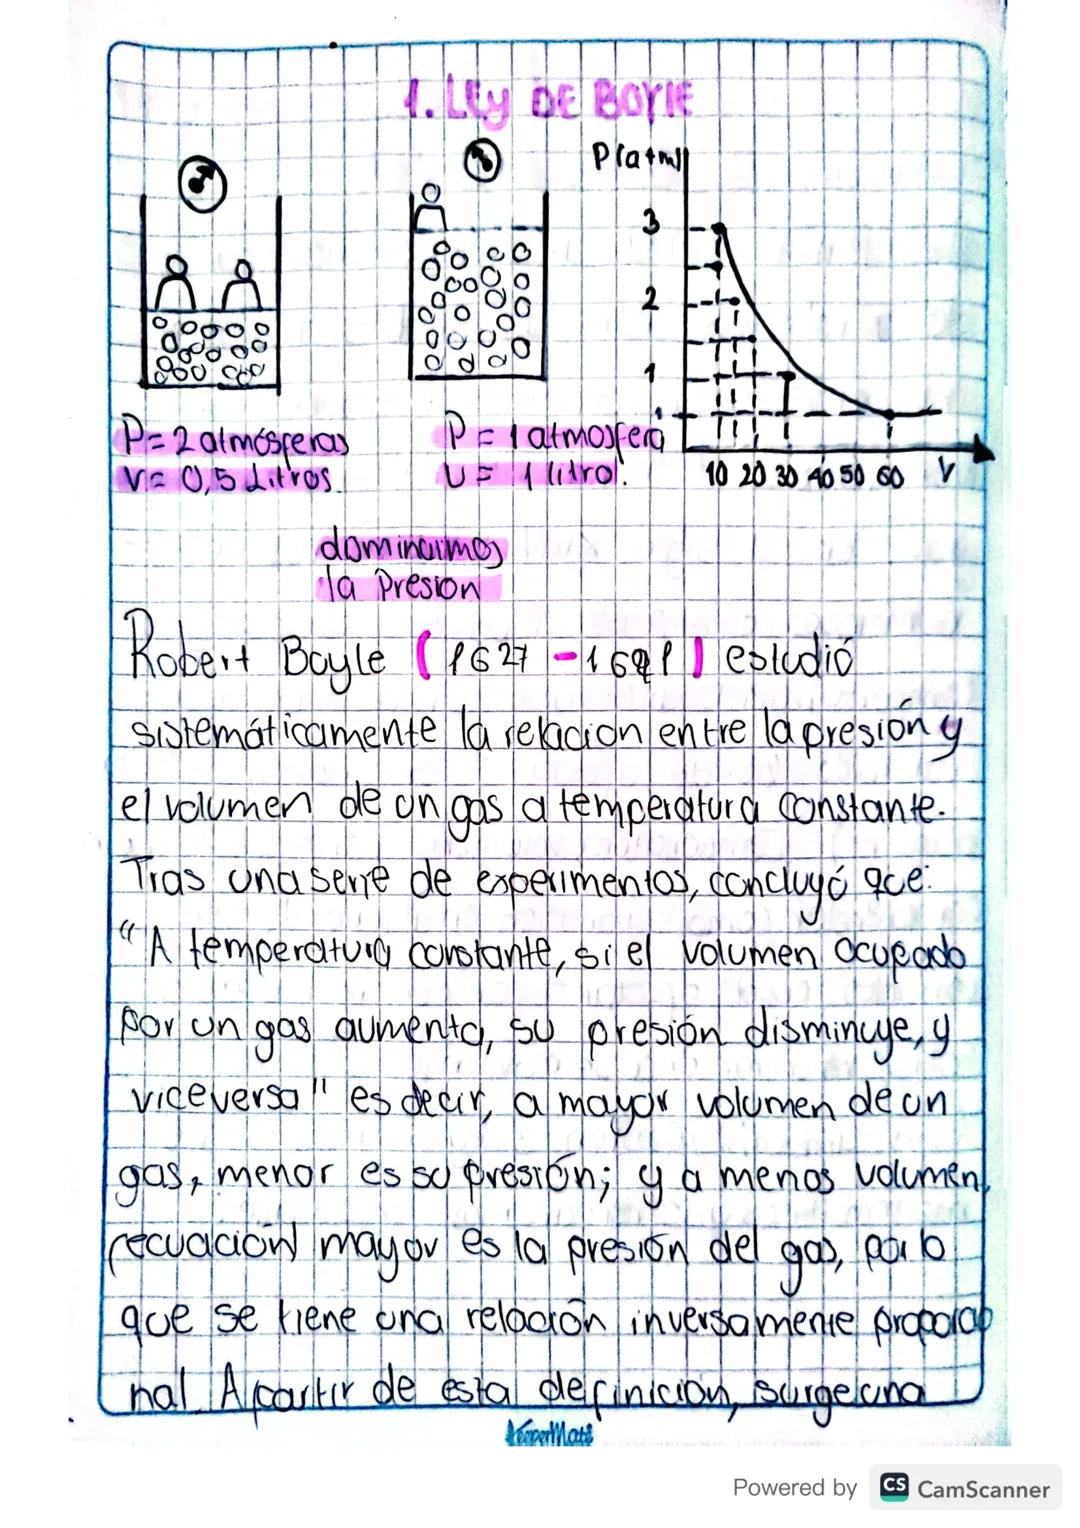 1. LEy DE BOYlE
P(atm)
3
2
1
10 20 30 40 50 60 V
P= 2 atmósferas
V= 0,5 Litros.
P = 1 atmosfera
V = 1 litro.
la Presion
Robert Boyle (1627 - 1691) estudió
sistemáticamente la relacion entre la presión y
el volumen de un gas a temperatura constante.
Tras una serie de experimentos, concluyó que:
"A temperatura constante, si el volumen ocupado
por un gas aumenta, su presión disminuye, y
viceversa" es decir, a mayor volumen de un
gas, menor es su presión; y a menos volumen,
recuación mayor es la presión del gas, por lo
que se tiene una relación inversamente proporcio
nal. A partir de esta definición, surge una
KeeperMate
Powered by CS CamScanner